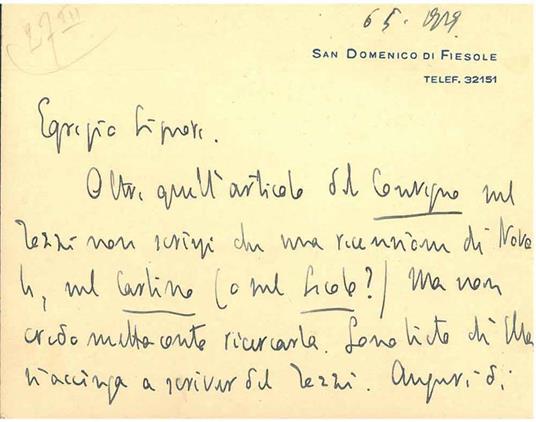 27 III
6 5. 1929
SAN DOMENICO DI FIESOLE
TELEF. 32151
Egregio Signore.
Oltre quell'articolo del Convegno sul
Tozzi non scrissi che una recensione di Nove
le, sul Carlino (o sul Secolo?) Ma non
credo metta conto ricercarla. Sono lieto di Ella
s'accinga a scrivere del Tozzi. Auguri di